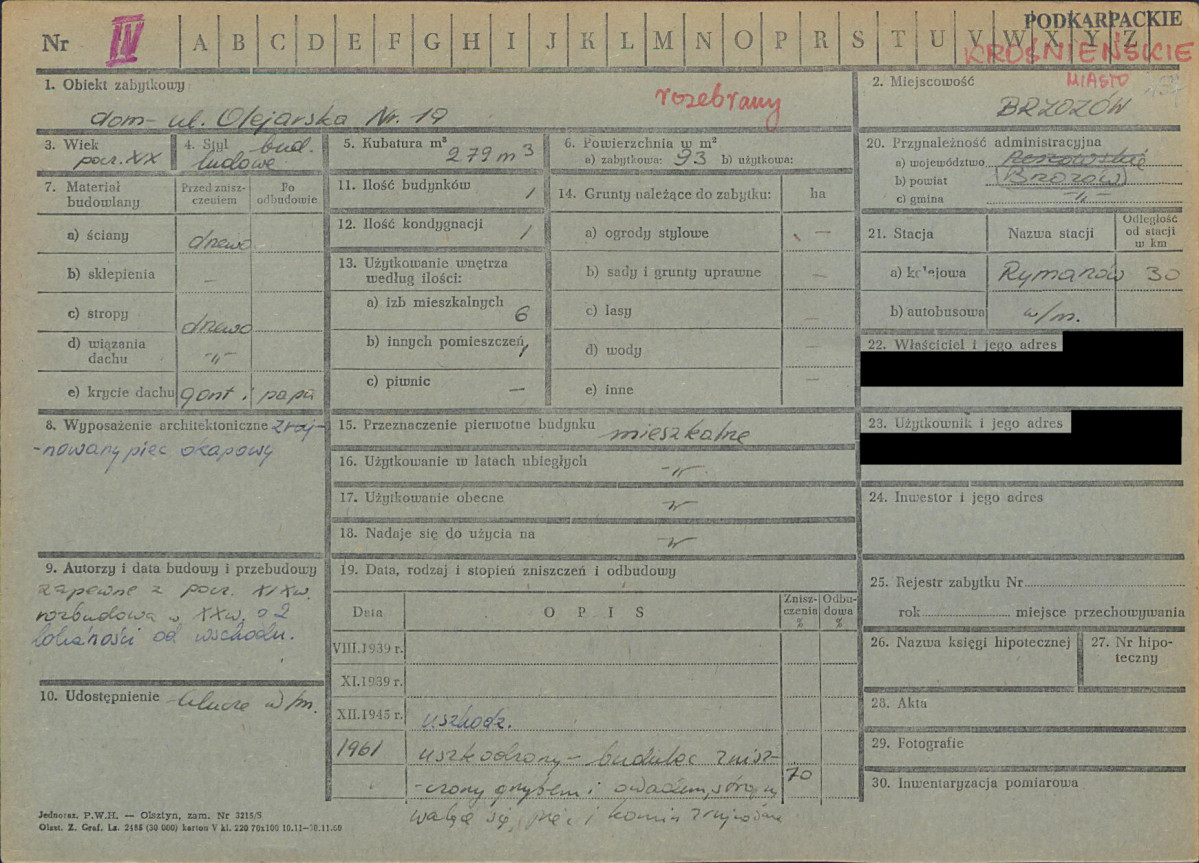 PODKARPACKIE
Nr IV A B C D E F G H I J K L M N O P R S T U V W X Y Z
KROŚNIEŃSKIE
1. Obiekt zabytkowy:
dom - ul. Olejarska Nr. 19
rozebrany
2. Miejscowość
MIASTO
BRZOZÓW
3. Wiek
pocz. XIX
4. Styl bud.
ludowe
5. Kubatura m³
279 m³
6. Powierzchnia w m²
a) zabytkowa: 93 b) użytkowa:
20. Przynależność administracyjna
a) województwo Rzeszowskie
b) powiat (Brzozów)
c) gmina -"-
7. Materiał
budowlany
Przed znisz-
czeniem
Po
odbudowie
a) ściany drewo
b) sklepienia -
c) stropy drewo
d) wiązania
dachu -"-
e) krycie dachu gont i papa
11. Ilość budynków 1
12. Ilość kondygnacji 1
13. Użytkowanie wnętrza
według ilości:
a) izb mieszkalnych 6
b) innych pomieszczeń 1
c) piwnic -
14. Grunty należące do zabytku: ha
a) ogrody stylowe -
b) sady i grunty uprawne -
c) lasy -
d) wody -
e) inne -
21. Stacja Nazwa stacji
Odległość
od stacji
w km
a) kolejowa Rymanów 30
b) autobusowa w/m.
22. Właściciel i jego adres
23. Użytkownik i jego adres
8. Wyposażenie architektoniczne zruj-
-nowany piec okapowy
15. Przeznaczenie pierwotne budynku mieszkalne
16. Użytkowanie w latach ubiegłych -"-
17. Użytkowanie obecne -"-
18. Nadaje się do użycia na -"-
24. Inwestor i jego adres
9. Autorzy i data budowy i przebudowy
zapewne z pocz. XIXw.
rozbudowa w XXw. o 2
lokalności od wschodu.
10. Udostępnienie klucze w/m.
19. Data, rodzaj i stopień zniszczeń i odbudowy
Data OPIS
Znisz-
czenia
%
Odbu-
dowa
%
VIII.1939 r.
XI.1939 r.
XII.1945 r. uszkodz.
1961 uszkodzony - budulec znisz- 70
-czony grzybem i owadem, stropy
walą się, piec i komin zrujnowane
25. Rejestr zabytku Nr
rok miejsce przechowywania
26. Nazwa księgi hipotecznej
27. Nr hipo-
teczny
28. Akta
29. Fotografie
30. Inwentaryzacja pomiarowa
Jednoraz. P.W.H. — Olsztyn, zam. Nr 3215/S
Olszt. Z. Graf. Lz. 2485 (30 000) karton V kl. 220 70x100 10.11—30.11.60